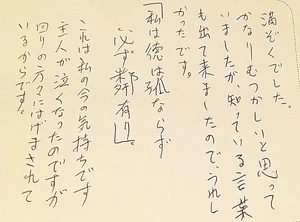 満ぞくでした。
かなりむつかしいと思って
いましたが、知っている言葉
も出て来ましたので、うれし
かったです。
「私は徳は孤ならず
必ず鄰有り」。
これは私の今の気持ちです
主人が泣くなったのですが
回りの方々にはげまされて
いるからです。